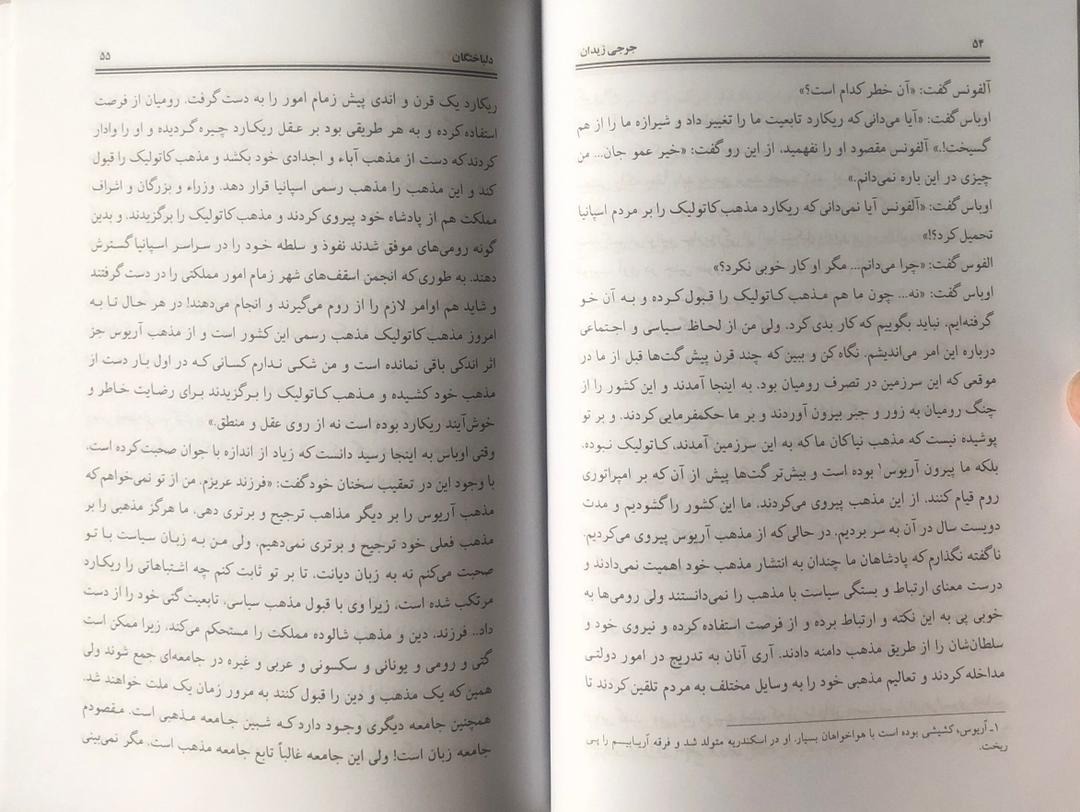 ۵۴
جرجی زیدان
آلفونس گفت: «آن خطر کدام است؟»
اوباس گفت: «آیا می‌دانی که ریکارد تابعیت ما را تغییر داد و شیرازه ما را از هم
گسیخت!.» آلفونس مقصود او را نفهمید، از این رو گفت: «خیر عمو جان... من
چیزی در این باره نمی‌دانم.»
اوباس گفت: «آلفونس آیا نمی‌دانی که ریکارد مذهب کاتولیک را بر مردم اسپانیا
تحمیل کرد؟!»
الفوس گفت: «چرا می‌دانم... مگر او کار خوبی نکرد؟»
اوباس گفت: «نه... چون ما هم مذهب کاتولیک را قبول کرده و به آن خو
گرفته‌ایم. نباید بگوییم که کار بدی کرد، ولی من از لحاظ سیاسی و اجتماعی
درباره این امر می‌اندیشم. نگاه کن و ببین که چند قرن پیش گت‌ها قبل از ما در
موقعی که این سرزمین در تصرف رومیان بود، به اینجا آمدند و این کشور را از
چنگ رومیان به زور و جبر بیرون آوردند و بر ما حکمفرمایی کردند. و بر تو
پوشیده نیست که مذهب نیاکان ما که به این سرزمین آمدند، کاتولیک نبوده،
بلکه ما پیرون آریوس۱ بوده است و بیش‌تر گت‌ها پیش از آن که بر امپراتوری
روم قیام کنند، از این مذهب پیروی می‌کردند. ما این کشور را گشودیم و مدت
دویست سال در آن به سر بردیم. در حالی که از مذهب آریوس پیروی می‌کردیم.
ناگفته نگذارم که پادشاهان ما چندان به انتشار مذهب خود اهمیت نمی‌دادند و
درست معنای ارتباط و بستگی سیاست با مذهب را نمی‌دانستند ولی رومی‌ها به
خوبی پی به این نکته و ارتباط برده و از فرصت استفاده کرده و نیروی خود و
سلطان‌شان را از طریق مذهب دامنه دادند. آری آنان به تدریج در امور دولتی
مداخله کردند و تعالیم مذهبی خود را به وسایل مختلف به مردم تلقین کردند تا
۱ـ آریوس، کشیشی بوده است با هواخواهان بسیار. او در اسکندریه متولد شد و فرقه آریابیسم را پی
ریخت.
دلباختگان
۵۵
ریکارد یک قرن و اندی پیش زمام امور را به دست گرفت. رومیان از فرصت
استفاده کرده و به هر طریقی بود بر عقل ریکارد چیره گردیده و او را وادار
کردند که دست از مذهب آباء و اجدادی خود بکشد و مذهب کاتولیک را قبول
کند و این مذهب را مذهب رسمی اسپانیا قرار دهد. وزراء و بزرگان و اشراف
مملکت هم از پادشاه خود پیروی کردند و مذهب کاتولیک را برگزیدند. و بدین
گونه رومی‌های موفق شدند نفوذ و سلطه خود را در سراسر اسپانیا گسترش
دهند. به طوری که انجمن اسقف‌های شهر زمام امور مملکتی را در دست گرفتند
و شاید هم اوامر لازم را از روم می‌گیرند و انجام می‌دهند! در هر حال تا به
امروز مذهب کاتولیک مذهب رسمی این کشور است و از مذهب آریوس جز
اثر اندکی باقی نمانده است و من شکی ندارم کسانی که در اول بار دست از
مذهب خود کشیده و مذهب کاتولیک را برگزیدند برای رضایت خاطر و
خوش‌آیند ریکارد بوده است نه از روی عقل و منطق.»
وقتی اوباس به اینجا رسید دانست که زیاد از اندازه با جوان صحبت کرده است،
با وجود این در تعقیب سخنان خود گفت: «فرزند عزیزم، من از تو نمی‌خواهم که
مذهب آریوس را بر دیگر مذاهب ترجیح و برتری دهی. ما هرگز مذهبی را بر
مذهب فعلی خود ترجیح و برتری نمی‌دهیم. ولی من به زبان سیاست با تو
صحبت می‌کنم نه به زبان دیانت، تا بر تو ثابت کنم چه اشتباهاتی را ریکارد
مرتکب شده است، زیرا وی با قبول مذهب سیاسی، تابعیت گتی خود را از دست
داد.. فرزند، دین و مذهب شالوده مملکت را مستحکم می‌کند، زیرا ممکن است
گتی و رومی و یونانی و سکسونی و عربی و غیره در جامعه‌ای جمع شوند ولی
همین که یک مذهب و دین را قبول کنند به مرور زمان یک ملت خواهند شد.
همچنین جامعه دیگری وجود دارد که شبین جامعه مذهبی است. مقصودم
جامعه زبان است! ولی این جامعه غالباً تابع جامعه مذهب است. مگر نمی‌بینی